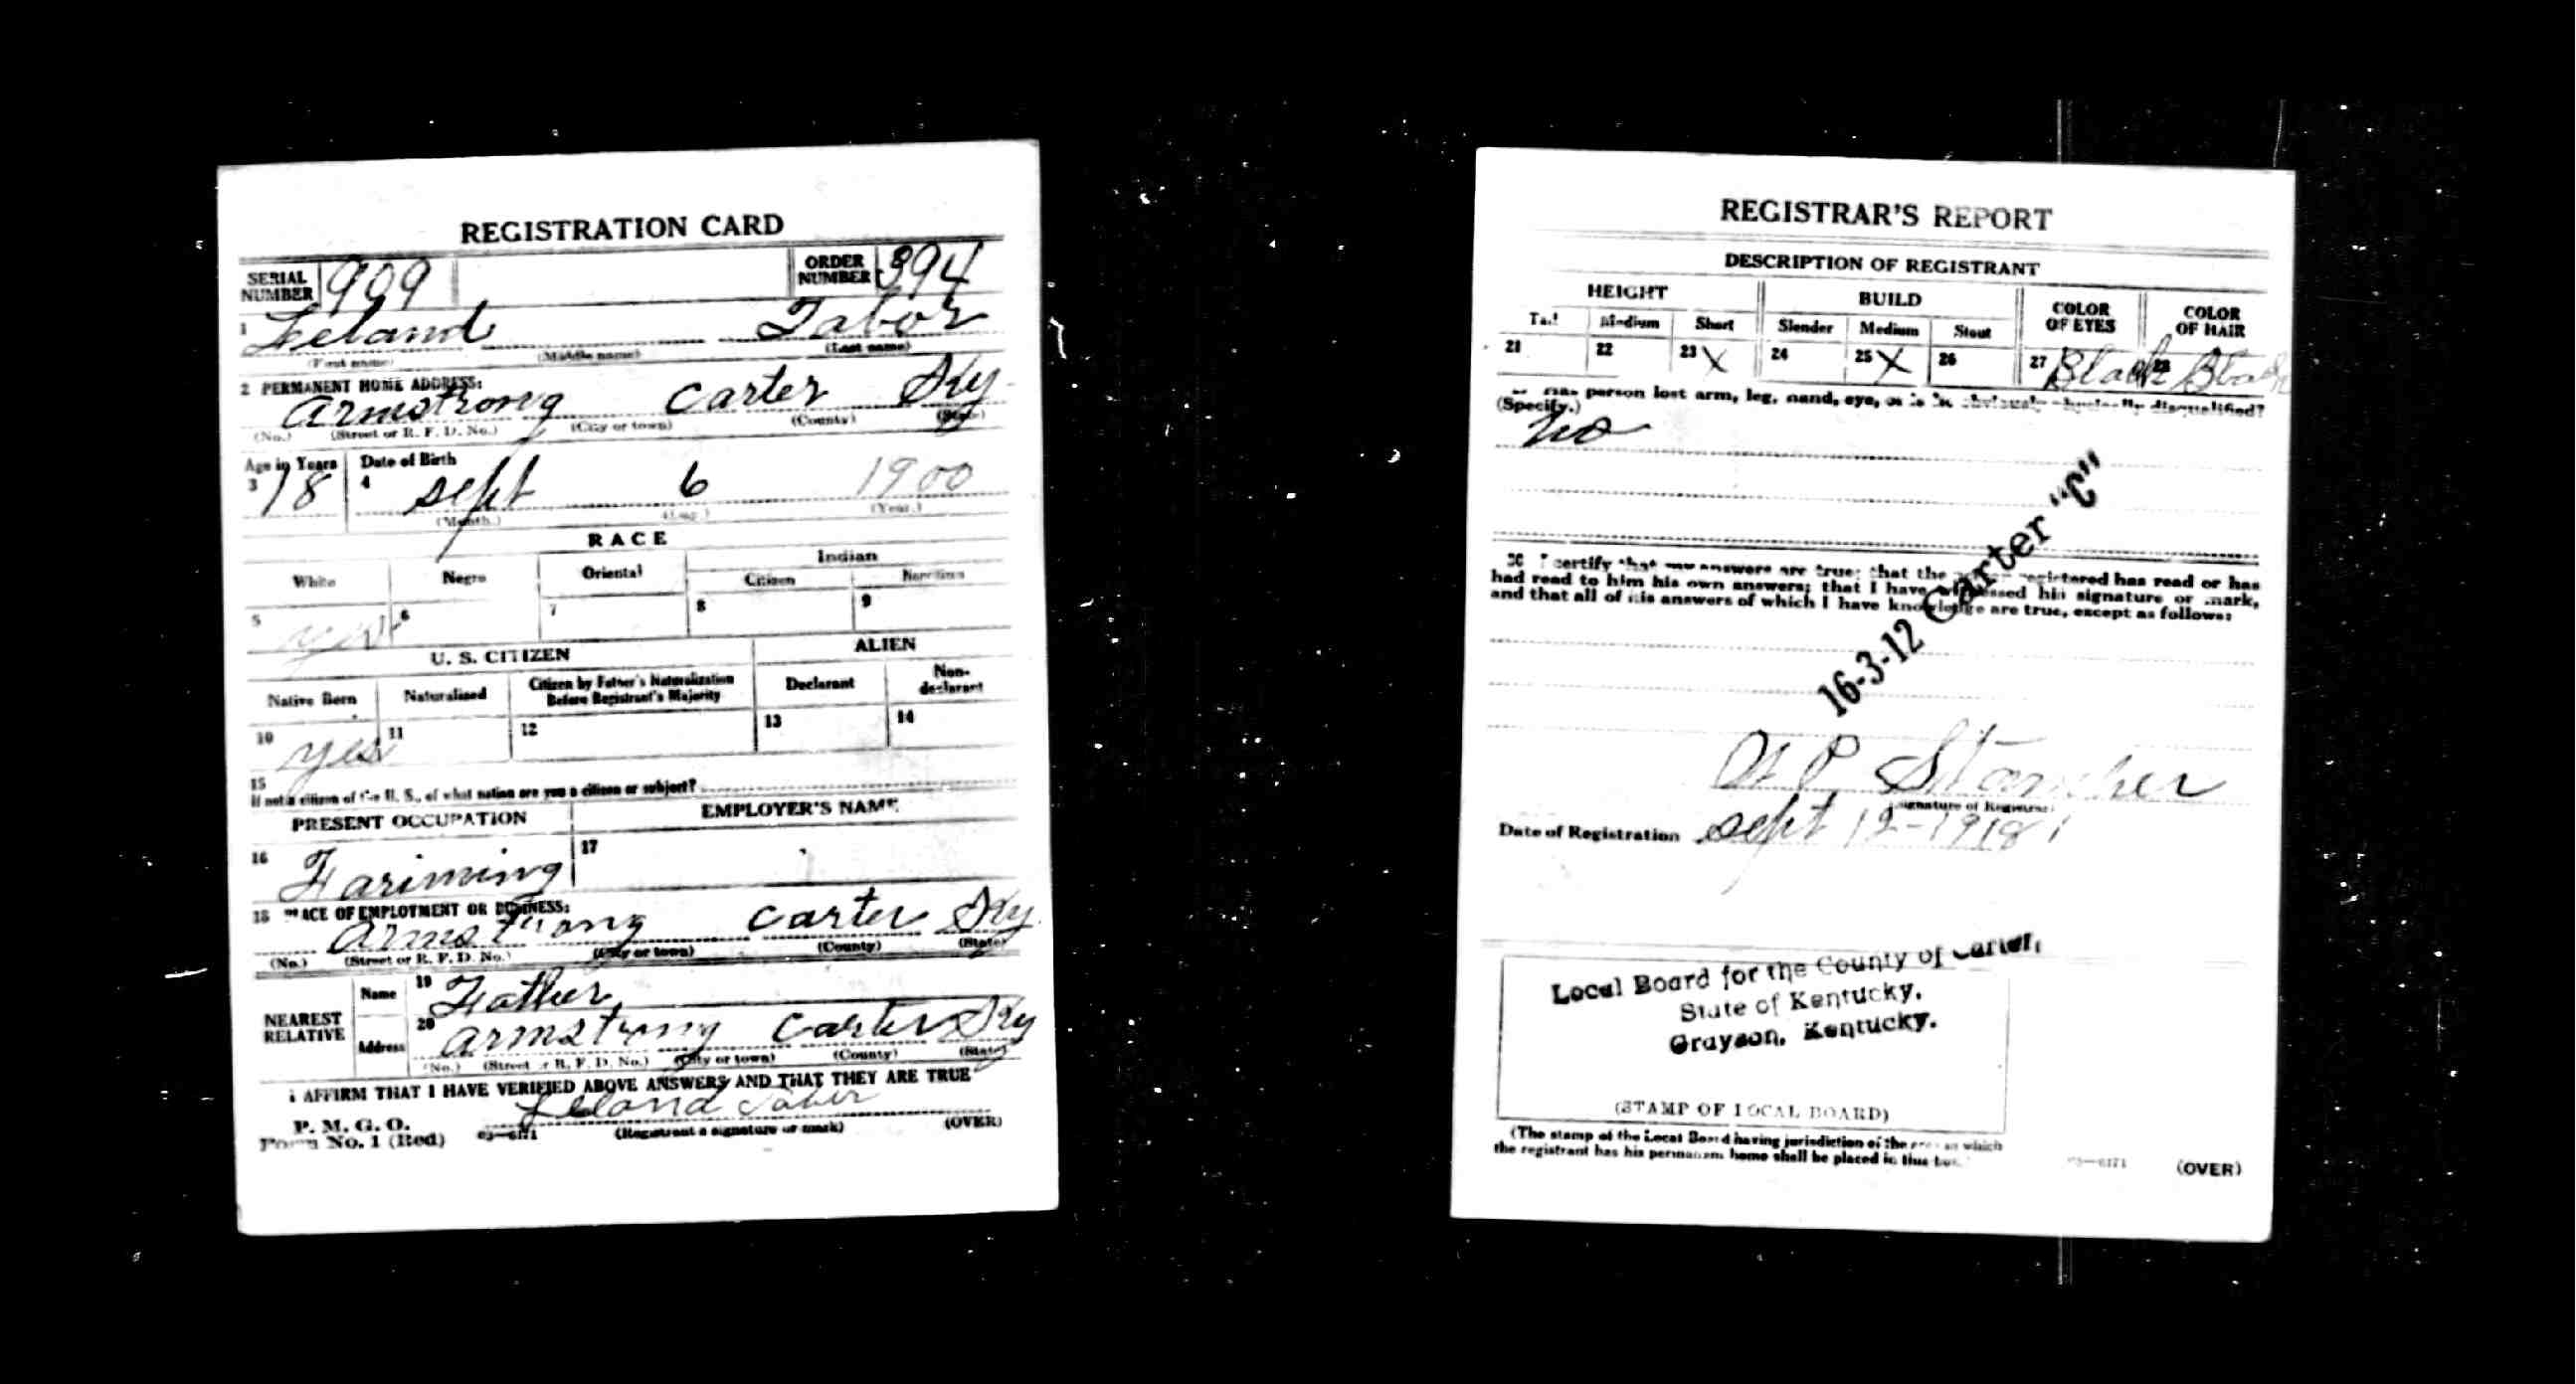 REGISTRATION CARD
SERIAL NUMBER 909 ORDER NUMBER 394
1 Leland Tabor
(First name) (Middle name) (Last name)
2 PERMANENT HOME ADDRESS:
Armstrong Carter Ky
(No.) (Street or R. F. D. No.) (City or town) (County) (State)
Age in Years Date of Birth
3 18 4 Sept 6 1900
(Month.) (Day.) (Year.)
RACE
White Negro Oriental Indian
Citizen Noncitizen
5 yes 6 7 8 9
U. S. CITIZEN ALIEN
Native Born Naturalized Citizen by Father's Naturalization Before Registrant's Majority Declarant Non-declarant
10 yes 11 12 13 14
15
If not a citizen of the U. S., of what nation are you a citizen or subject?
PRESENT OCCUPATION EMPLOYER'S NAME
16 Fariming 17
18 PLACE OF EMPLOYMENT OR BUSINESS:
Armstrong Carter Ky
(No.) (Street or R. F. D. No.) (City or town) (County) (State)
NEAREST RELATIVE Name 19 Father
Address 20 Armstrong Carter Ky
(No.) (Street or R. F. D. No.) (City or town) (County) (State)
I AFFIRM THAT I HAVE VERIFIED ABOVE ANSWERS AND THAT THEY ARE TRUE
P. M. G. O. Leland Tabor
Form No. 1 (Red) 03—6171 (Registrant's signature or mark) (OVER)
REGISTRAR'S REPORT
DESCRIPTION OF REGISTRANT
HEIGHT BUILD COLOR OF EYES COLOR OF HAIR
Tall Medium Short Slender Medium Stout
21 22 23 X 24 25 X 26 27 Black 28 Black
person lost arm, leg, hand, eye, or is he obviously physically disqualified?
(Specify.)
No
I certify that my answers are true; that the person registered has read or has
had read to him his own answers; that I have witnessed his signature or mark,
and that all of his answers of which I have knowledge are true, except as follows:
16-3-12 Carter "C"
Stamper
(Signature of Registrar)
Date of Registration Sept 12-1918
Local Board for the County of Carter,
State of Kentucky,
Grayson, Kentucky.
(STAMP OF LOCAL BOARD)
(The stamp of the Local Board having jurisdiction of the area in which
the registrant has his permanent home shall be placed in this box.)
03—6171 (OVER)